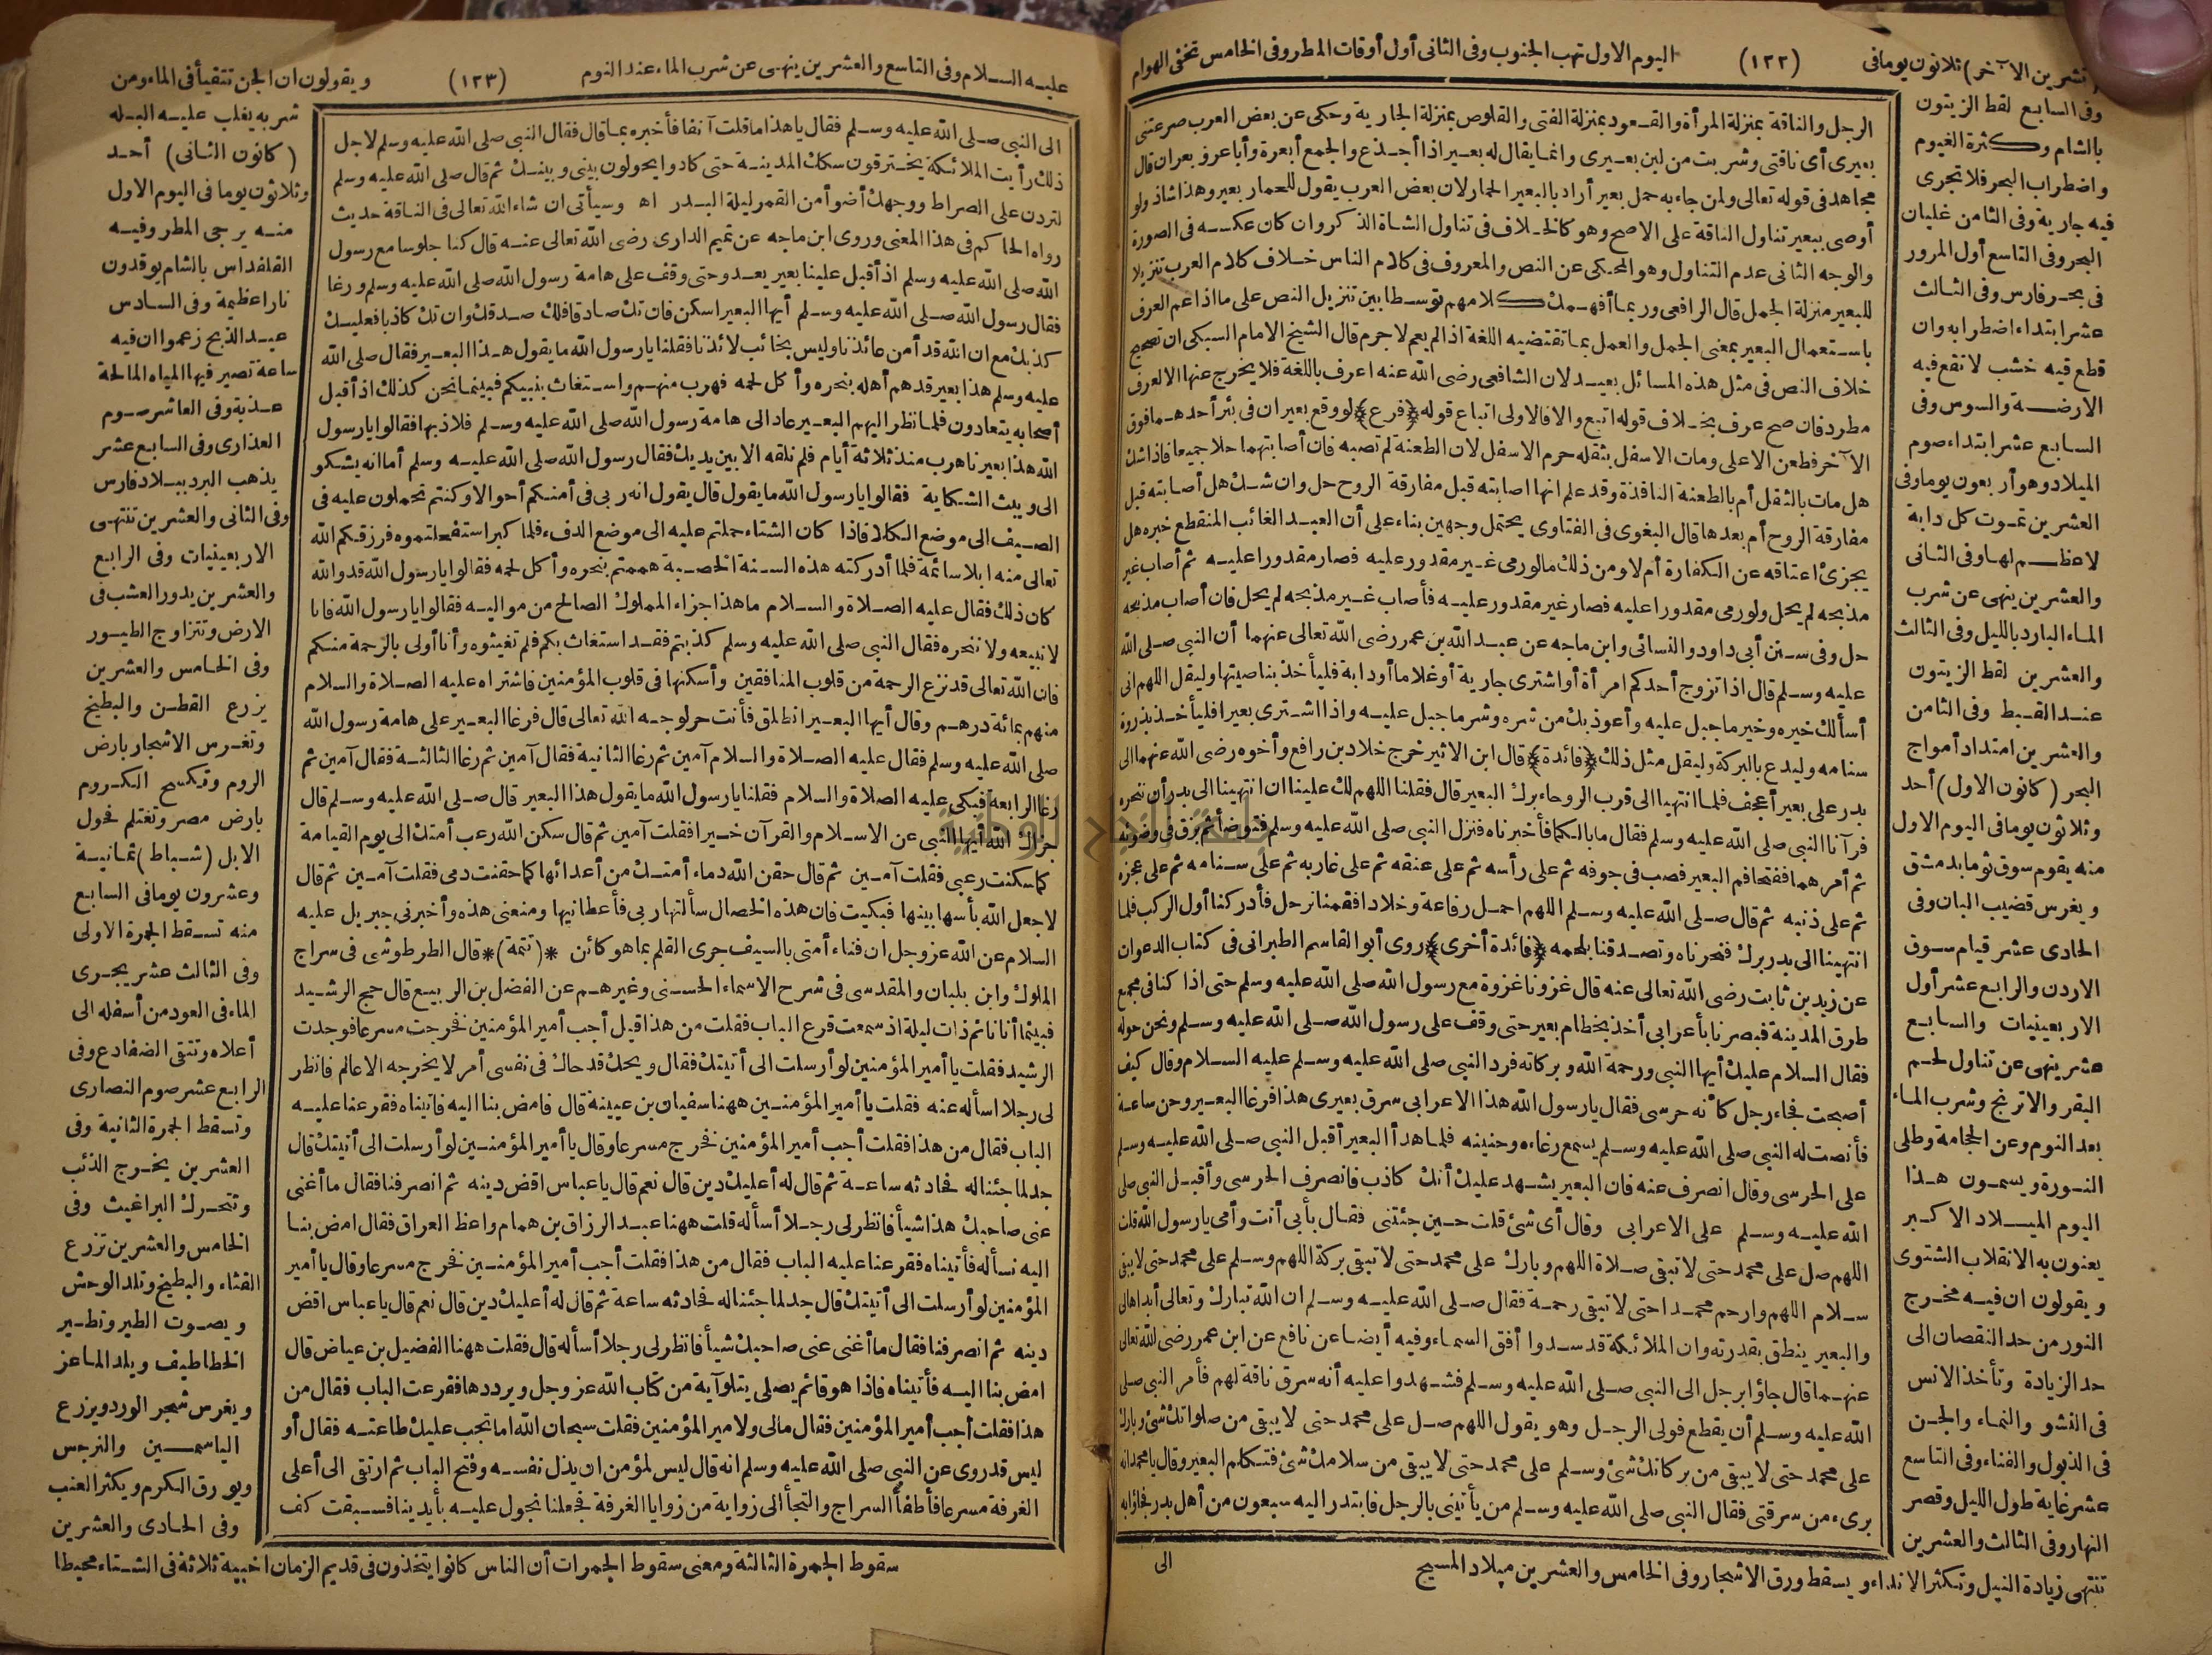 (تشرين الآخر) ثلاثون يوما فى (١٢٢) اليوم الاول تهب الجنوب وفى الثانى أول أوقات المطر وفى الخامس تختفى الهوام
وفى السابع لقط الزيتون
بالشام وكثرة الغيوم
واضطراب البحر فلا تجرى
فيه جارية وفى الثامن غليان
البحر وفى التاسع أول المرور
فى بحر فارس وفى الثالث
عشر ابتداء اضطرابه وان
قطع فيه خشب لا تقع فيه
الارضة والسوس وفى
السابع عشر ابتداء صوم
الميلاد وهو أربعون يوما وفى
العشرين تموت كل دابة
لا عظم لها وفى الثانى
والعشرين ينهى عن شرب
الماء البارد بالليل وفى الثالث
والعشرين لقط الزيتون
عند القبط وفى الثامن
والعشرين امتداد أمواج
البحر (كانون الاول) أحد
وثلاثون يوما فى اليوم الاول
منه يقوم سوق ثوما بدمشق
ويغرس قضيب البان وفى
الحادى عشر قيام سوق
الاردن والرابع عشر أول
الاربعينيات والسابع
عشر ينهى عن تناول لحم
البقر والاترنج وشرب الماء
بعد النوم وعن الحجامة وطلى
النورة ويسمون هذا
اليوم الميلاد الاكبر
يعنون به الانقلاب الشتوى
ويقولون ان فيه مخرج
النور من حد النقصان الى
حد الزيادة وتأخذ الانس
فى النشو والنماء والجن
فى الذبول والفناء وفى التاسع
عشر غاية طول الليل وقصر
النهار وفى الثالث والعشرين
تنتهى زيادة النيل وتكثر الانداء ويسقط ورق الاشجار وفى الخامس والعشرين ميلاد المسيح
الرجل والناقة بمنزلة المرأة والقعود بمنزلة الفتى والقلوص بمنزلة الجارية وحكى عن بعض العرب صرعتنى
بعيرى أى ناقتى وشربت من لبن بعيرى وانما يقال له بعير اذا أجذع والجمع أبعرة وأباعر وبعران قال
مجاهد فى قوله تعالى ولمن جاء به حمل بعير أراد بالبعير الحمار لان بعض العرب يقول للحمار بعير وهذا شاذ ولو
أوصى ببعير تناول الناقة على الاصح وهو كالخلاف فى تناول الشاة الذكر وان كان عكسه فى الصورة
والوجه الثانى عدم التناول وهو المحكى عن النص والمعروف فى كلام الناس خلاف كلام العرب تنزيلا
للبعير منزلة الجمل قال الرافعى وربما أفهمك كلامهم توسطا بين تنزيل النص على ما اذا عم العرف
باستعمال البعير بمعنى الجمل والعمل بما تقتضيه اللغة اذا لم يعم لا جرم قال الشيخ الامام السبكى ان تصحيح
خلاف النص فى مثل هذه المسائل بعيد لان الشافعى رضى الله عنه اعرف باللغة فلا يخرج عنها الا لعرف
مطرد فان صح عرف بخلاف قوله اتبع والا فالاولى اتباع قوله (فرع) لو وقع بعيران فى بئر أحدهما فوق
الآخر فطعن الاعلى ومات الاسفل بثقله حرم الاسفل لان الطعنة لم تصبه فان أصابتهما حلا جميعا فاذا شك
هل مات بالثقل أم بالطعنة النافذة وقد علم انها اصابته قبل مفارقة الروح حل وان شك هل أصابته قبل
مفارقة الروح أم بعدها قال البغوى فى الفتاوى يحتمل وجهين بناء على أن العبد الغائب المنقطع خبره هل
يجزئ اعتاقه عن الكفارة أم لا ومن ذلك مالو رمى غير مقدور عليه فصار مقدورا عليه ثم أصاب غير
مذبحه لم يحل ولو رمى مقدورا عليه فصار غير مقدور عليه فأصاب غير مذبحه لم يحل فان أصاب مذبحه
حل وفى سنن أبى داود والنسائى وابن ماجه عن عبد الله بن عمر رضى الله تعالى عنهما أن النبى صلى الله
عليه وسلم قال اذا تزوج أحدكم امرأة أو اشترى جارية أو غلاما أو دابة فليأخذ بناصيتها وليقل اللهم انى
أسألك خيره وخير ما جبل عليه وأعوذ بك من شره وشر ما جبل عليه واذا اشترى بعيرا فليأخذ بذروة
سنامه وليدع بالبركة وليقل مثل ذلك (فائدة) قال ابن الاثير خرج خلاد بن رافع وأخوه رضى الله عنهما الى
بدر على بعير أعجف فلما انتهيا الى قرب الروحاء برك البعير قال فقلنا اللهم لك علينا ان انتهينا الى بدر أن ننحره
فرآنا النبى صلى الله عليه وسلم فقال ما بالكما فأخبرناه فنزل النبى صلى الله عليه وسلم فتوضأ ثم بزق فى وضوئه
ثم أمرهما ففتحا فم البعير فصب فى جوفه ثم على رأسه ثم على عنقه ثم على غاربه ثم على سنامه ثم على عجزه
ثم على ذنبه ثم قال صلى الله عليه وسلم اللهم احمل رفاعة وخلادا فقمنا نرحل فأدركنا أول الركب فلما
انتهينا الى بدر برك فنحرناه وتصدقنا بلحمه (فائدة أخرى) روى أبو القاسم الطبرانى فى كتاب الدعوات
عن زيد بن ثابت رضى الله تعالى عنه قال غزونا غزوة مع رسول الله صلى الله عليه وسلم حتى اذا كنا فى مجمع
طرق المدينة فبصرنا بأعرابى أخذ بخطام بعير حتى وقف على رسول الله صلى الله عليه وسلم ونحن حوله
فقال السلام عليك أيها النبى ورحمة الله وبركاته فرد النبى صلى الله عليه وسلم عليه السلام وقال كيف
أصبحت فجاء رجل كأنه حرسى فقال يا رسول الله هذا الاعرابى سرق بعيرى هذا فرغا البعير وحن ساعة
فأنصت له النبى صلى الله عليه وسلم يسمع رغاءه وحنينه فلما هدأ البعير أقبل النبى صلى الله عليه وسلم
على الحرسى وقال انصرف عنه فان البعير يشهد عليك أنك كاذب فانصرف الحرسى وأقبل النبى صلى
الله عليه وسلم على الاعرابى وقال أى شئ قلت حين جئتنى فقال بأبى أنت وأمى يا رسول الله قلت
اللهم صل على محمد حتى لا تبقى صلاة اللهم وبارك على محمد حتى لا تبقى بركة اللهم وسلم على محمد حتى لا يبقى
سلام اللهم وارحم محمدا حتى لا تبقى رحمة فقال صلى الله عليه وسلم ان الله تبارك وتعالى أبداها لى
والبعير ينطق بقدرته وان الملائكة قد سدوا أفق السماء وفيه أيضا عن نافع عن ابن عمر رضى الله تعالى
عنهما قال جاؤا برجل الى النبى صلى الله عليه وسلم فشهدوا عليه أنه سرق ناقة لهم فأمر النبى صلى
الله عليه وسلم أن يقطع فولى الرجل وهو يقول اللهم صل على محمد حتى لا يبقى من صلواتك شئ وبارك
على محمد حتى لا يبقى من بركاتك شئ وسلم على محمد حتى لا يبقى من سلامك شئ فتكلم البعير وقال يا محمد انه
برىء من سرقتى فقال النبى صلى الله عليه وسلم من يأتينى بالرجل فابتدر اليه سبعون من أهل بدر فجاؤا به
الى
عليه السلام وفى التاسع والعشرين ينهى عن شرب الماء عند النوم (١٢٣) ويقولون ان الجن تتقيأ فى الماء ومن
الى النبى صلى الله عليه وسلم فقال يا هذا ما قلت آنفا فأخبره بما قال فقال النبى صلى الله عليه وسلم لاجل
ذلك رأيت الملائكة يخترقون سكك المدينة حتى كادوا يحولون بينى وبينك ثم قال صلى الله عليه وسلم
لتردن على الصراط ووجهك أضوأ من القمر ليلة البدر اه وسيأتى ان شاء الله تعالى فى الناقة حديث
رواه الحاكم فى هذا المعنى وروى ابن ماجه عن تميم الدارى رضى الله تعالى عنه قال كنا جلوسا مع رسول
الله صلى الله عليه وسلم اذ أقبل علينا بعير يعدو حتى وقف على هامة رسول الله صلى الله عليه وسلم ورغا
فقال رسول الله صلى الله عليه وسلم أيها البعير اسكن فان تك صادقا فلك صدقك وان تك كاذبا فعليك
كذبك مع ان الله قد أمن عائذنا وليس بخائب لائذنا فقلنا يا رسول الله ما يقول هذا البعير فقال صلى الله
عليه وسلم هذا بعير قد هم أهله بنحره وأكل لحمه فهرب منهم واستغاث بنبيكم فبينما نحن كذلك اذ أقبل
أصحابه يتعادون فلما نظر اليهم البعير عاد الى هامة رسول الله صلى الله عليه وسلم فلاذ بها فقالوا يا رسول
الله هذا بعيرنا هرب منذ ثلاثة أيام فلم نلقه الا بين يديك فقال رسول الله صلى الله عليه وسلم أما انه يشكو
الى ويبث الشكاية فقالوا يا رسول الله ما يقول قال يقول انه ربى فى أمنكم أحوالا وكنتم تحملون عليه فى
الصيف الى موضع الكلا فاذا كان الشتاء حملتم عليه الى موضع الدفء فلما كبر استفحلتموه فرزقكم الله
تعالى منه ابلا سائمة فلما أدركته هذه السنة الخصبة هممتم بنحره وأكل لحمه فقالوا يا رسول الله قد والله
كان ذلك فقال عليه الصلاة والسلام ما هذا جزاء المملوك الصالح من مواليه فقالوا يا رسول الله فانا
لا نبيعه ولا ننحره فقال النبى صلى الله عليه وسلم كذبتم فقد استغاث بكم فلم تغيثوه وأنا أولى بالرحمة منكم
فان الله تعالى قد نزع الرحمة من قلوب المنافقين وأسكنها فى قلوب المؤمنين فاشتراه عليه الصلاة والسلام
منهم بمائة درهم وقال أيها البعير انطلق فأنت حر لوجه الله تعالى قال فرغا البعير على هامة رسول الله
صلى الله عليه وسلم فقال عليه الصلاة والسلام آمين ثم رغا الثانية فقال آمين ثم رغا الثالثة فقال آمين ثم
رغا الرابعة فبكى عليه الصلاة والسلام فقلنا يا رسول الله ما يقول هذا البعير قال صلى الله عليه وسلم قال
جزاك الله أيها النبى عن الاسلام والقرآن خيرا فقلت آمين ثم قال سكن الله رعب أمتك الى يوم القيامة
كما سكنت رعبى فقلت آمين ثم قال حقن الله دماء أمتك من أعدائها كما حقنت دمى فقلت آمين ثم قال
لا جعل الله بأسها بينها فبكيت فان هذه الخصال سألتها ربى فأعطانيها ومنعنى هذه وأخبرنى جبريل عليه
السلام عن الله عز وجل ان فناء أمتى بالسيف جرى القلم بما هو كائن *(تتمة)* قال الطرطوشى فى سراج
الملوك وابن بلبان والمقدسى فى شرح الاسماء الحسنى وغيرهم عن الفضل بن الربيع قال حج الرشيد
فبينما أنا نائم ذات ليلة اذ سمعت قرع الباب فقلت من هذا قيل أجب أمير المؤمنين فخرجت مسرعا فوجدت
الرشيد فقلت يا أمير المؤمنين لو أرسلت الى أتيتك فقال ويحك قد حاك فى نفسى أمر لا يخرجه الا عالم فانظر
لى رجلا اسأله عنه فقلت يا أمير المؤمنين ههنا سفيان بن عيينة قال فامض بنا اليه فأتيناه فقرعنا عليه
الباب فقال من هذا فقلت أجب أمير المؤمنين فخرج مسرعا وقال يا أمير المؤمنين لو أرسلت الى أتيتك قال
جد لما جئنا له فحادثه ساعة ثم قال له أعليك دين قال نعم قال يا عباس اقض دينه ثم انصرفنا فقال ما أغنى
عنى صاحبك هذا شيأ فانظر لى رجلا أسأله قلت ههنا عبد الرزاق بن همام واعظ العراق فقال امض بنا
اليه نسأله فأتيناه فقرعنا عليه الباب فقال من هذا فقلت أجب أمير المؤمنين فخرج مسرعا وقال يا أمير
المؤمنين لو أرسلت الى أتيتك قال جد لما جئنا له فحادثه ساعة ثم قال له أعليك دين قال نعم قال يا عباس اقض
دينه ثم انصرفنا فقال ما أغنى عنى صاحبك شيأ فانظر لى رجلا أسأله قال فقلت ههنا الفضيل بن عياض قال
امض بنا اليه فأتيناه فاذا هو قائم يصلى يتلو آية من كتاب الله عز وجل ويرددها فقرعت الباب فقال من
هذا فقلت أجب أمير المؤمنين فقال مالى ولامير المؤمنين فقلت سبحان الله اما تجب عليك طاعته فقال أو
ليس قد روى عن النبى صلى الله عليه وسلم انه قال ليس لمؤمن ان يذل نفسه وفتح الباب ثم ارتقى الى أعلى
الغرفة مسرعا فأطفأ السراج والتجأ الى زواية من زوايا الغرفة فجعلنا نجول عليه بأيدينا فسبقت كف
شربه يغلب عليه البله
(كانون الثانى) أحد
وثلاثون يوما فى اليوم الاول
منه يرجى المطر وفيه
القلفداس بالشام يوقدون
نارا عظيمة وفى السادس
عيد الذبح زعموا ان فيه
ساعة تصير فيها المياه المالحة
عذبة وفى العاشر صوم
العذارى وفى السابع عشر
يذهب البرد ببلاد فارس
وفى الثانى والعشرين تنتهى
الاربعينيات وفى الرابع
والعشرين يدور العشب فى
الارض وتتزاوج الطيور
وفى الخامس والعشرين
يزرع القطن والبطيخ
وتغرس الاشجار بارض
الروم وتكسح الكروم
بارض مصر وتغتلم فحول
الابل (شباط) ثمانية
وعشرون يوما فى السابع
منه تسقط الجمرة الاولى
وفى الثالث عشر يجرى
الماء فى العود من أسفله الى
أعلاه وتنق الضفادع وفى
الرابع عشر صوم النصارى
وتسقط الجمرة الثانية وفى
العشرين يخرج الذئب
وتتحرك البراغيث وفى
الخامس والعشرين تزرع
القثاء والبطيخ وتلد الوحش
ويصوت الطير وتطير
الخطاطيف ويلد الماعز
ويغرس شجر الورد ويزرع
الياسمين والنرجس
ويورق الكرم ويكثر العنب
وفى الحادى والعشرين
سقوط الجمرة الثالثة ومعنى سقوط الجمرات أن الناس كانوا يتخذون فى قديم الزمان اخبية ثلاثة فى الشتاء محيطا